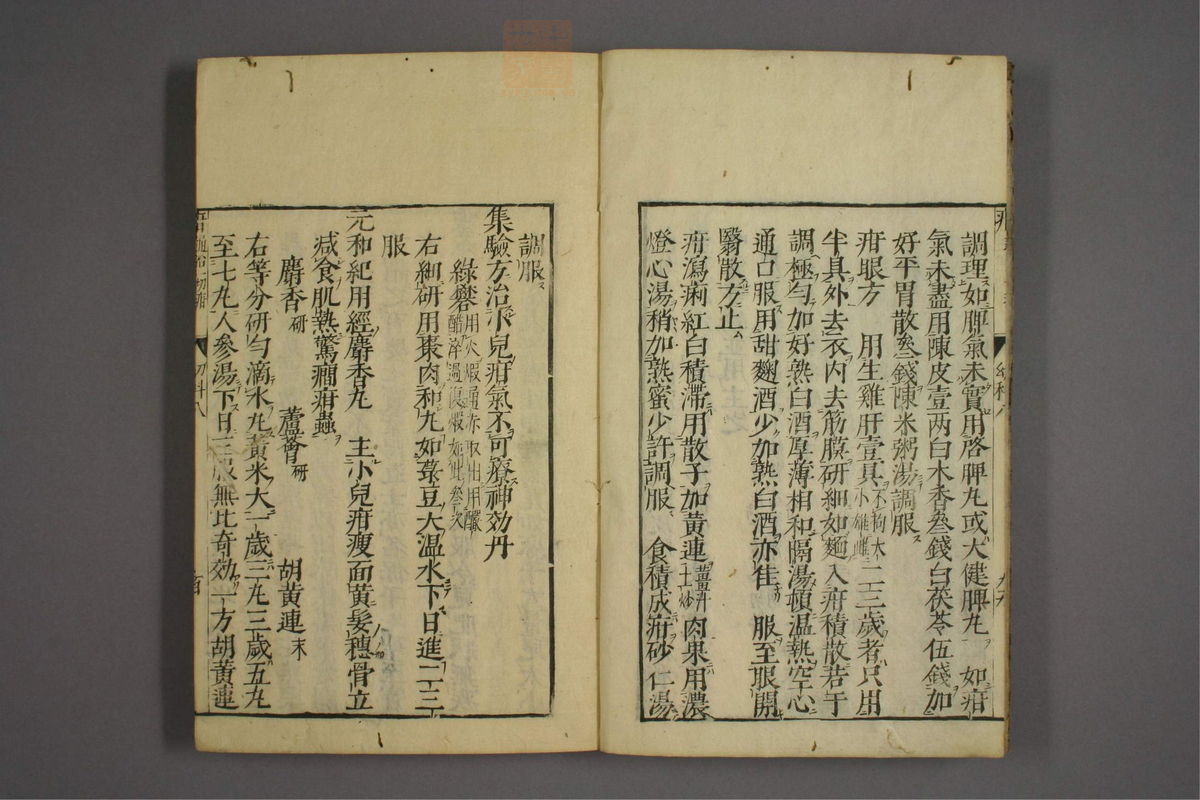 調理如脾氣未實用啓脾丸或大健脾丸 如疳
氣未盡用陳皮壹两白木香叁錢白茯苓伍錢加
好平胃散叁錢陳米粥湯調服
疳眼方 用生雞肝壹具不拘大小雄雌二三歲者只用
半具外去衣内去筋膜研細如麵入疳積散若干
調極勻加好熟白酒厚薄相和隔湯頓温熱空心
通口服用甜麴酒少加熟白酒亦佳 服至眼開
翳散方止
疳瀉痢紅白積滯用散子加黄連土炒肉果用濃
燈心湯稍加熟蜜少許調服 食積成疳砂仁湯
調服
集驗方治小兒疳氣不可療神効丹
綠礬用火煆通赤取出用釅醋淬過復煆如此叁次
右細研用棗肉和丸如菉豆大温水下日進二三
服
元和紀用經麝香丸 主小兒疳瘦面黄髮穗骨立
減食肌熱驚癇疳蟲
麝香研 蘆薈研 胡黄連末
右等分研勻滴水丸黄米大一歲三丸三歲五丸
至七丸人參湯下日三服無比奇効一方胡黄連